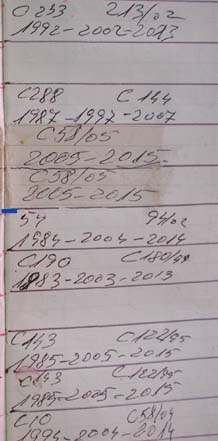 0233 213/02
1992-2002-2013
C288 C144
1987-1997-2007
C58/05
2005-2015
C58/05
2005-2015
54 94/02
1984-2004-2014
C190 C180/98
1983-2003-2013
C143 C122/95
1985-2005-2015
C143 C122/95
1985-2005-2015
C10 C58/04
1994-2004-2014